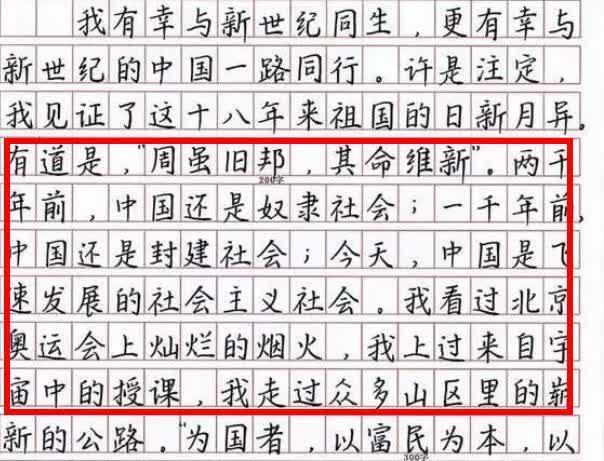 我有幸与新世纪同生，更有幸与
新世纪的中国一路同行。许是注定，
我见证了这十八年来祖国的日新月异。
有道是，“周虽旧邦，其命维新”。两千
200字
年前，中国还是奴隶社会；一千年前，
中国还是封建社会；今天，中国是飞
速发展的社会主义社会。我看过北京
奥运会上灿烂的烟火，我上过来自宇
宙中的授课，我走过众多山区里的崭
新的公路。“为国者，以富民为本，以
300字